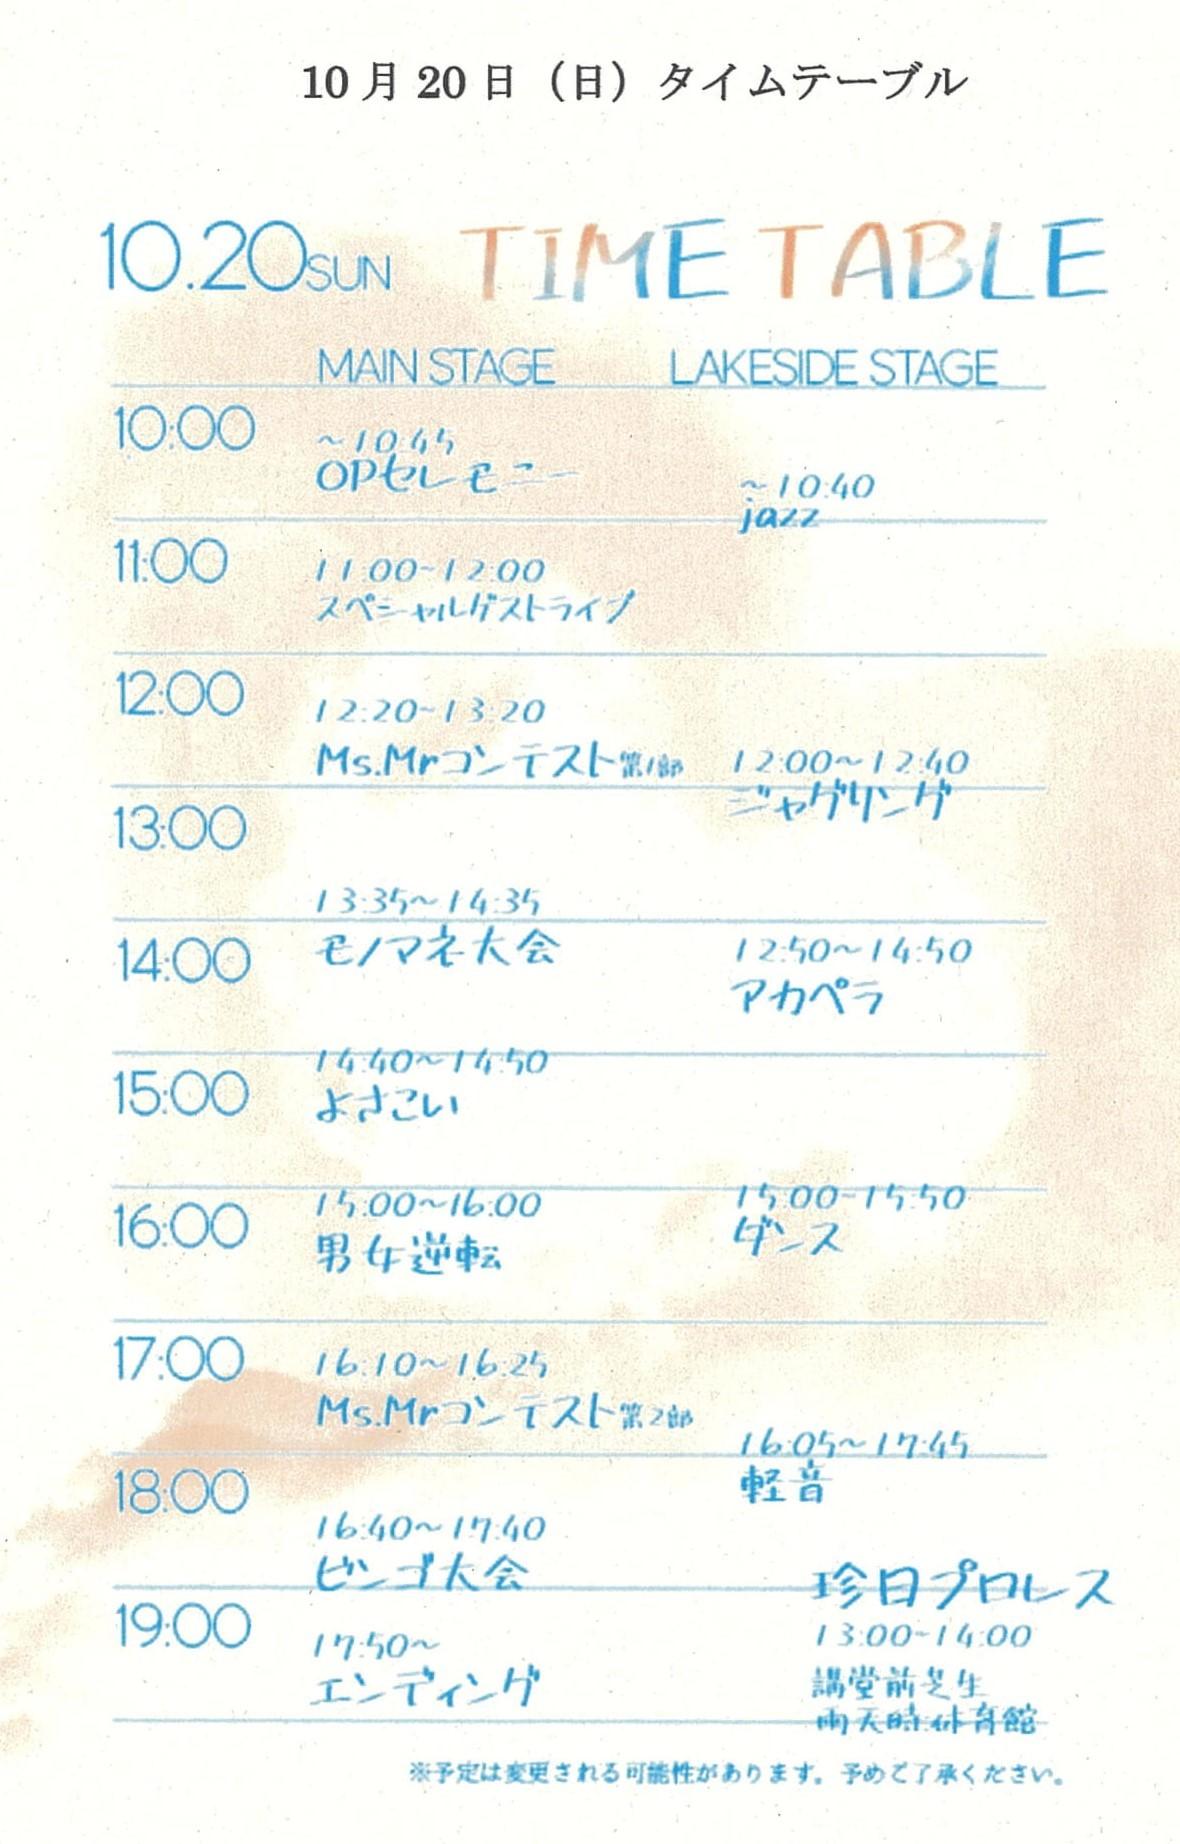 10月20日（日）タイムテーブル
10.20SUN TIME TABLE
MAIN STAGE LAKESIDE STAGE
10:00
~10:45
OPセレモニー
~10:40
jazz
11:00
11:00~12:00
スペシャルゲストライブ
12:00
12:20~13:20
Ms.Mrコンテスト第1部
12:00~12:40
ジャグリング
13:00
13:35~14:35
モノマネ大会
14:00
12:50~14:50
アカペラ
14:40~14:50
よさこい
15:00
15:00~16:00
男女逆転
15:00-15:50
ダンス
16:00
17:00
16:10~16:25
Ms.Mrコンテスト第2部
16:05~17:45
軽音
18:00
16:40~17:40
ビンゴ大会
19:00
17:50~
エンディング
珍日プロレス
13:00-14:00
講堂前芝生
雨天時体育館
※予定は変更される可能性があります。予めご了承ください。